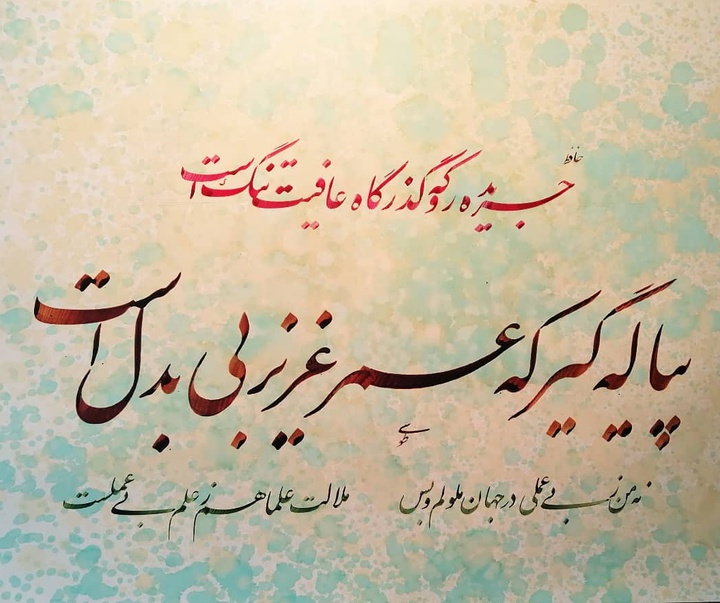 حافظ
جریده رو که گذرگاه عافیت تنگ است
پیاله گیر که عمر عزیز بی بدل است
نه من ز بی عملی در جهان ملولم و بس ملالت علما هم ز علم بی عملست